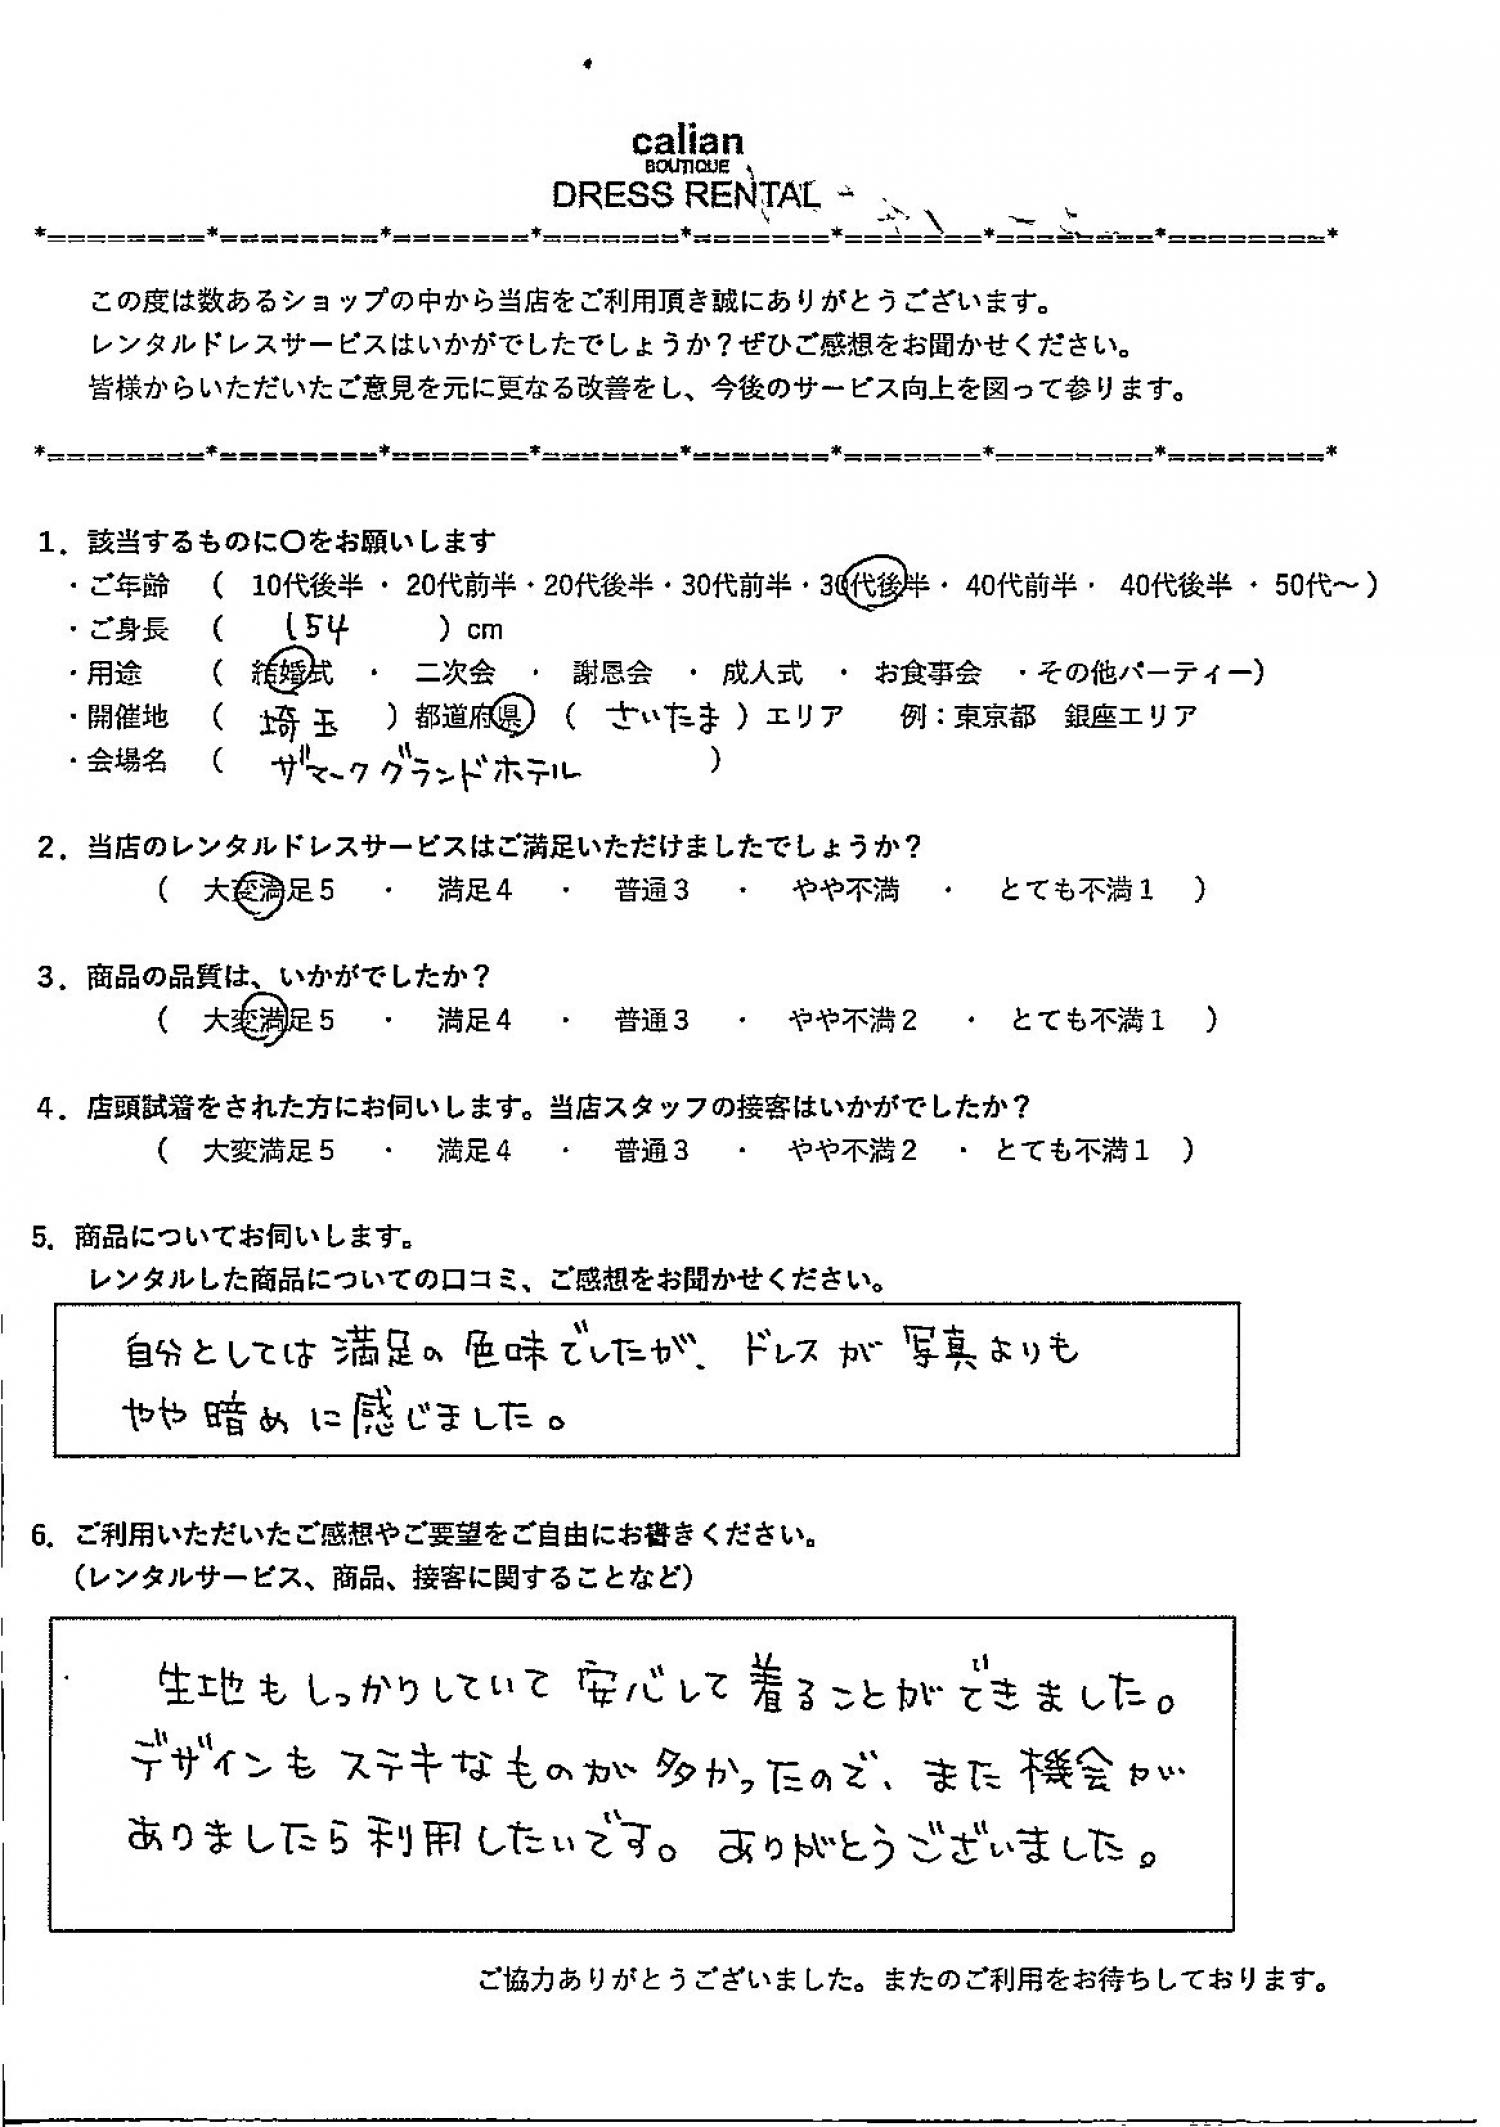 calian
BOUTIQUE
DRESS RENTAL
*========*========*=======*=======*=======*=======*========*========*
この度は数あるショップの中から当店をご利用頂き誠にありがとうございます。
レンタルドレスサービスはいかがでしたでしょうか？ぜひご感想をお聞かせください。
皆様からいただいたご意見を元に更なる改善をし、今後のサービス向上を図って参ります。
*========*========*=======*=======*=======*=======*========*========*
1．該当するものに〇をお願いします
・ご年齢 （ 10代後半 ・ 20代前半・20代後半・30代前半・30代後半・ 40代前半・ 40代後半 ・ 50代～）
・ご身長 （ 154 ）cm
・用途 （ 結婚式 ・ 二次会 ・ 謝恩会 ・ 成人式 ・ お食事会 ・その他パーティー）
・開催地 （ 埼玉 ）都道府県）（ さいたま ）エリア 例：東京都 銀座エリア
・会場名 （ ザマークグランドホテル ）
2．当店のレンタルドレスサービスはご満足いただけましたでしょうか？
（ 大変満足5 ・ 満足4 ・ 普通3 ・ やや不満 ・ とても不満1 ）
3．商品の品質は、いかがでしたか？
（ 大変満足5 ・ 満足4 ・ 普通3 ・ やや不満2 ・ とても不満1 ）
4．店頭試着をされた方にお伺いします。当店スタッフの接客はいかがでしたか？
（ 大変満足5 ・ 満足4 ・ 普通3 ・ やや不満2 ・ とても不満1 ）
5．商品についてお伺いします。
レンタルした商品についての口コミ、ご感想をお聞かせください。
自分としては満足の色味でしたが、ドレスが写真よりも
やや暗めに感じました。
6．ご利用いただいたご感想やご要望をご自由にお書きください。
（レンタルサービス、商品、接客に関することなど）
生地もしっかりしていて安心して着ることができました。
デザインもステキなものが多かったので、また機会が
ありましたら利用したいです。ありがとうございました。
ご協力ありがとうございました。またのご利用をお待ちしております。